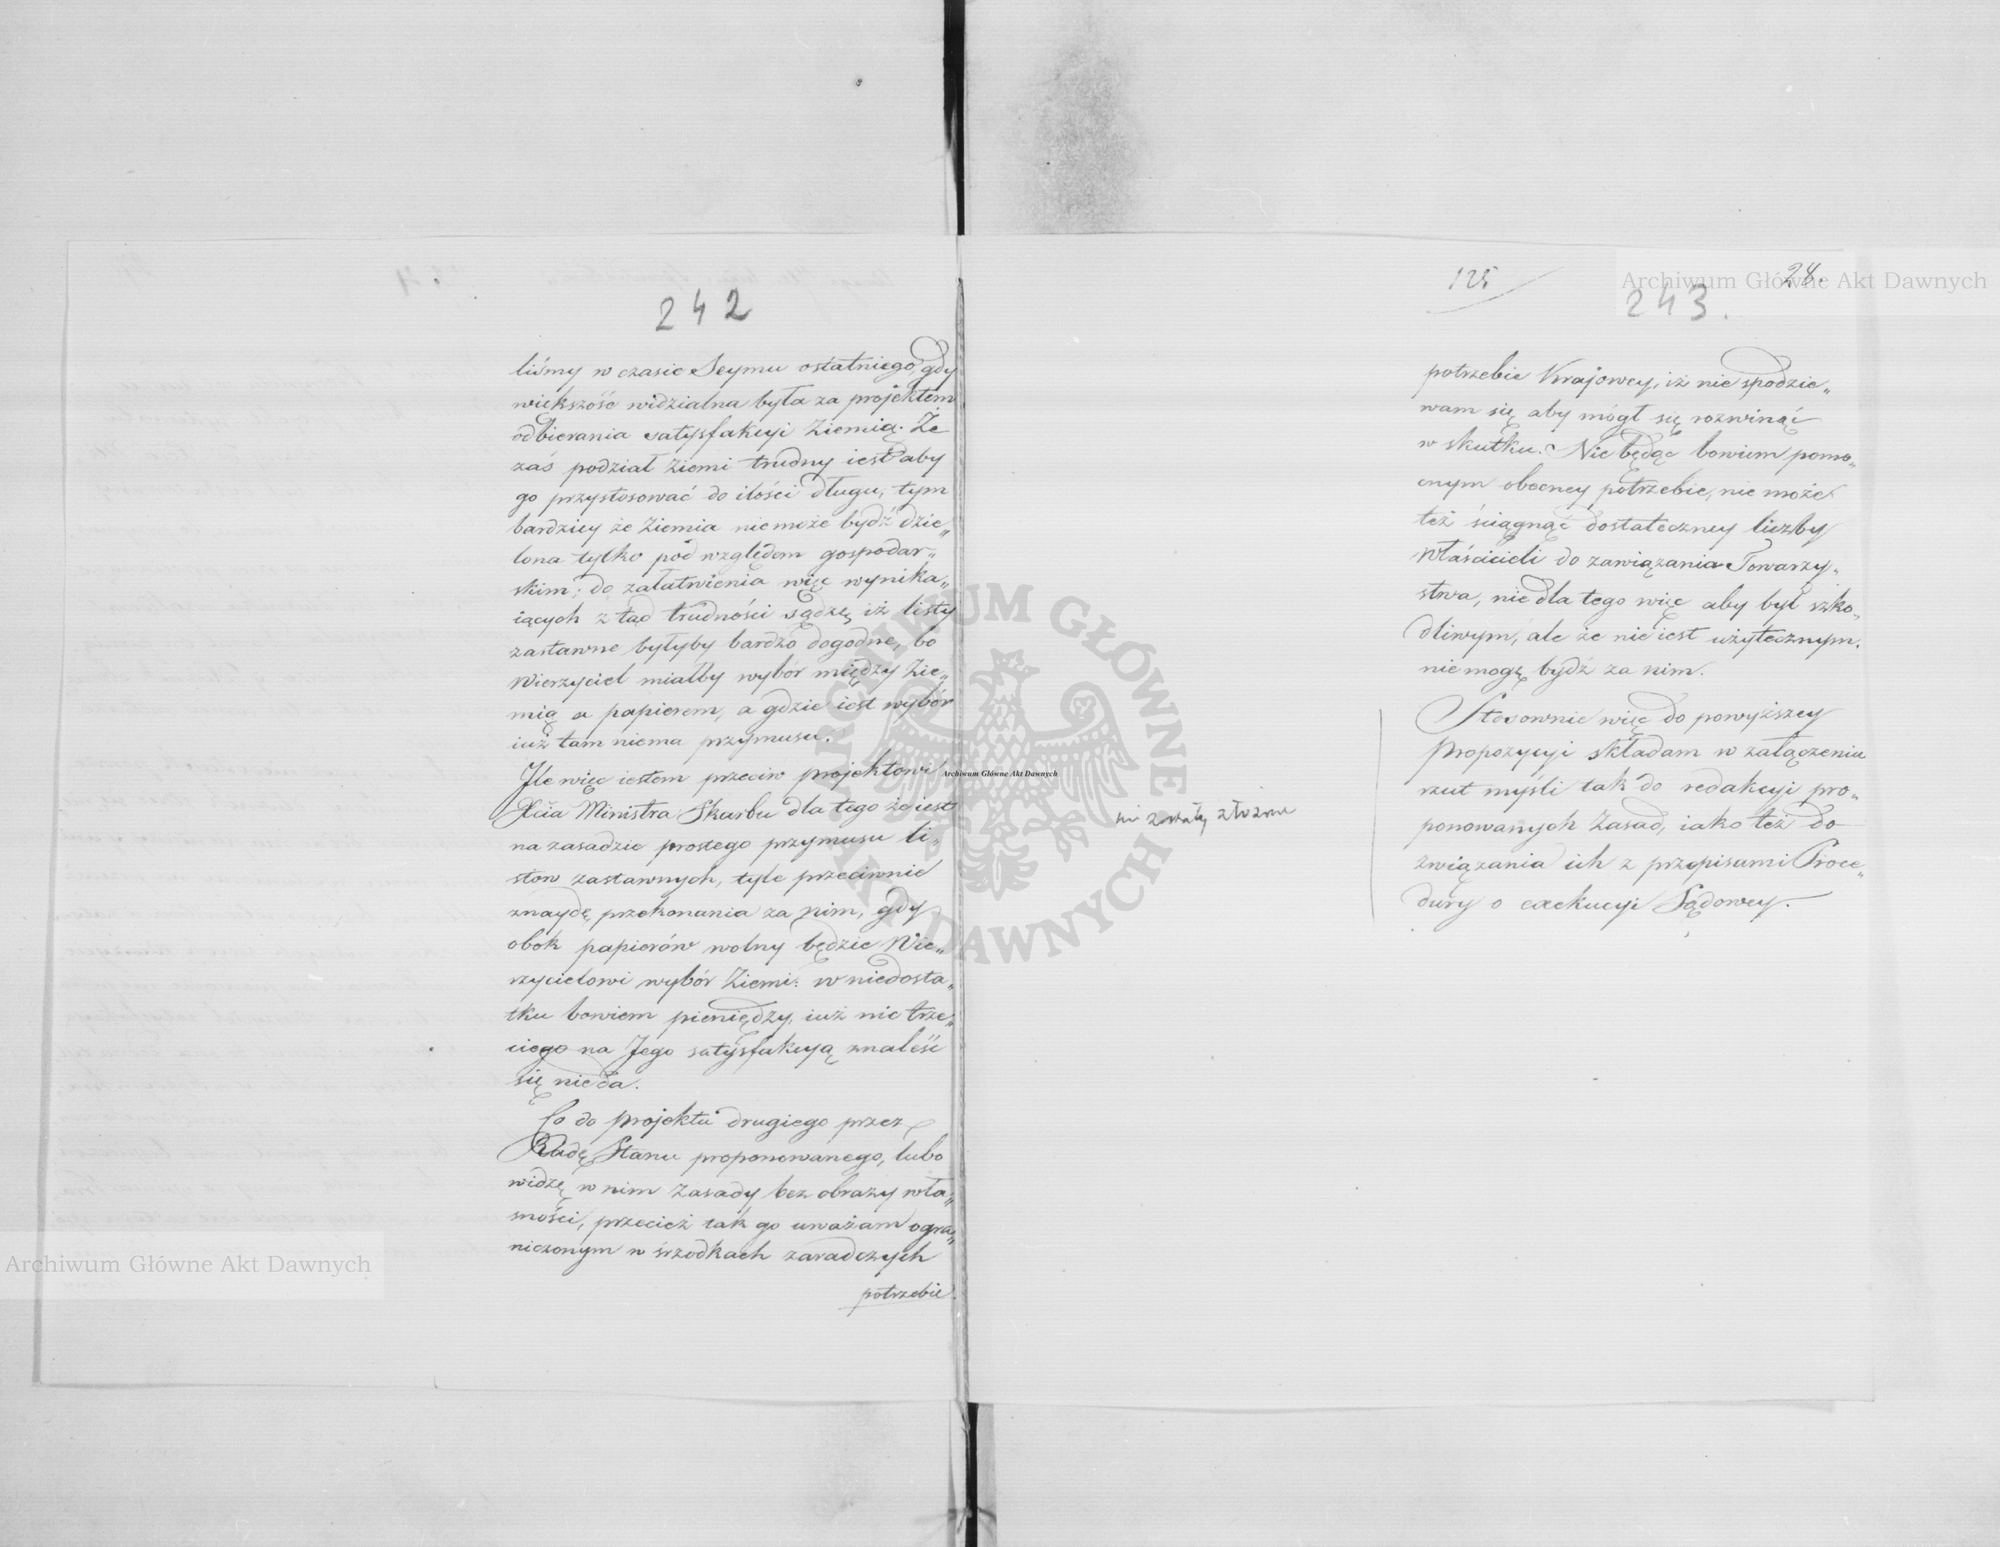 242
liśmy w czasie Seymu ostatniego, gdy
większość widzialna była za projektem
odbierania satysfakcyi Ziemią. Że
zaś podział Ziemi trudny iest aby
go przystosować do ilości długu, tym
bardziey że Ziemia nie może bydź dzie„
lona tylko pod względem gospodar„
skim; do załatwienia więc wynika„
iących z tąd trudności sądzę, iż listy
zastawne byłyby bardzo dogodne, bo
Wierzyciel miałby wybór między Zie„
mią a papierem, a gdzie iest wybór
iuż tam niema przymusu.
Ile więc iestem przeciw projektowi
Xcia Ministra Skarbu dla tego że iest
na zasadzie prostego przymusu li„
stow zastawnych, tyle przeciwnie
znaydę przekonania za nim, gdy
obok papierów wolny będzie Wie„
rzycielowi wybór Ziemi: w niedosta„
tku bowiem pieniędzy, iuż nic trze„
ciego na Jego satysfakcyą znaleść
się nieda.
Co do projektu drugiego przez
Radę Stanu proponowanego, lubo
widzę w nim Zasady bez obrazy wła„
sności, przecież tak go uważam ogra„
niczonym w śrzodkach zaradczych
potrzebie
125
24.
243.
potrzebie Krajowey, iż nie spodzie„
wam się aby mógł się rozwinąć
w skutku. Nie będąc bowiem pomo„
cnym obecney potrzebie, nie może
też ściągnąć dostateczney liczby
Właścicieli do zawiązania Towarzy„
stwa, nie dla tego więc aby był szko„
dliwym, ale że nie iest użytecznym,
nie mogę bydź za nim.
Stosownie więc do powyższey
propozycyi składam w załączeniu
rzut myśli tak do redakcyi pro„
ponowanych Zasad, iako też do
związania ich z przepisami Proce„
dury o exekucyi Sądowey.
nie zostały złożone
Archiwum Główne Akt Dawnych
Archiwum Główne Akt Dawnych
Archiwum Główne Akt Dawnych
ARCHIWUM GŁÓWNE AKT DAWNYCH